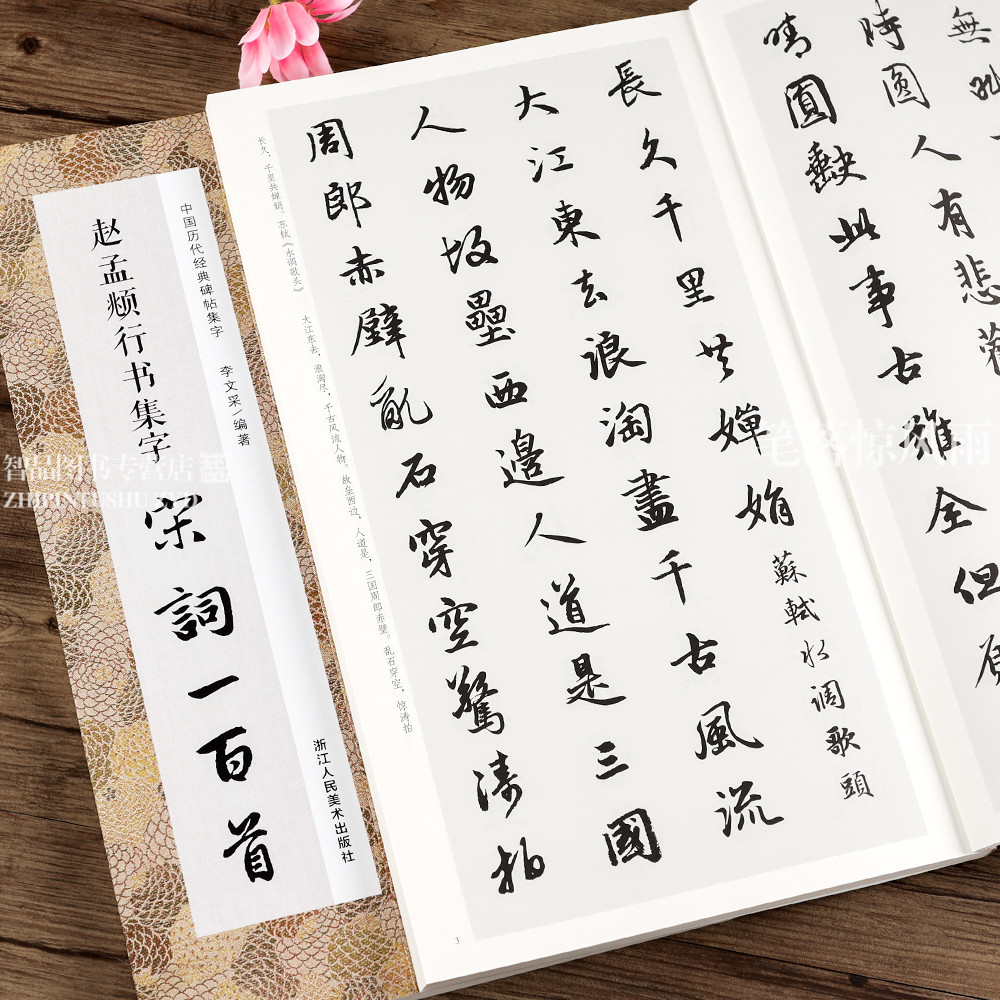 中国历代经典碑帖集字 李文采/编著
赵孟頫行书集字
宋词一百首
浙江人民美术出版社
無
時圓人有悲歡
晴圓缺此事古難全但
長久千里共嬋娟 蘇軾水調歌頭
大江東去浪淘盡千古風流
人物故壘西邊人道是三國
周郎赤壁亂石穿空驚濤拍
长久，千里共婵娟。苏轼《水调歌头》 大江东去，浪淘尽，千古风流人物。故垒西边，人道是，三国周郎赤壁。乱石穿空，惊涛拍
3
智品图书专营店
ZHIPINTUSHU ZYD
笔落惊风雨